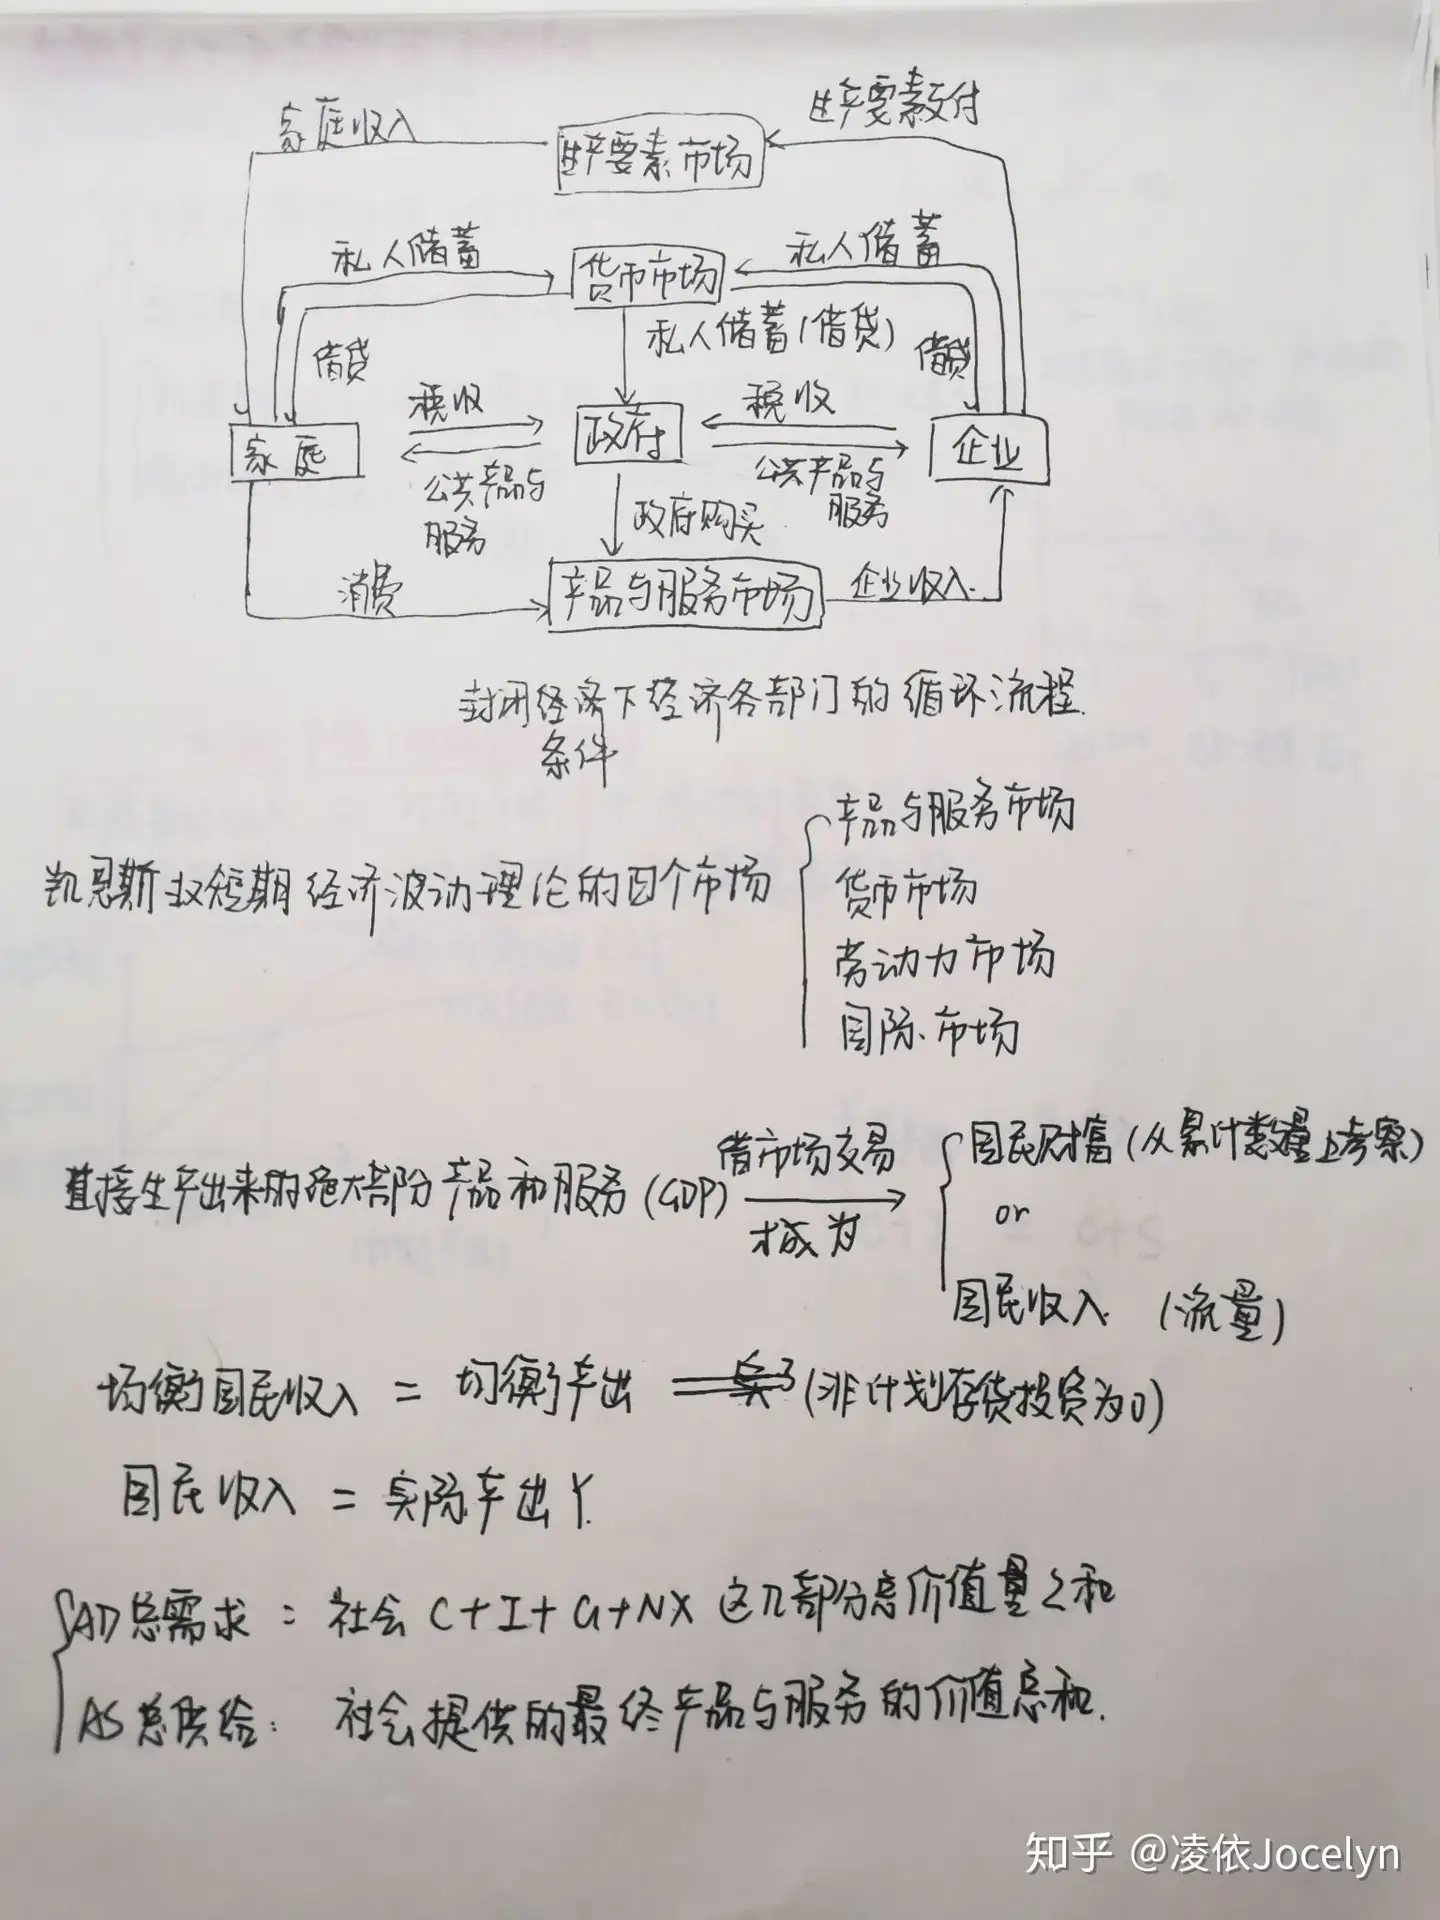 家庭收入
生产要素支付
生产要素市场
私人储蓄
货币市场
私人储蓄
借贷
私人储蓄(借贷)
借贷
税收
税收
家庭
政府
企业
公共产品与
服务
公共产品与
服务
政府购买
消费
产品与服务市场
企业收入
封闭经济下经济各部门的循环流程
条件
产品与服务市场
凯恩斯 短期经济波动理论的四个市场
货币市场
劳动力市场
国际市场
直接生产出来的绝大部分产品和服务(GDP)
借市场交易
才成为
国民财富(从累计数量上考察)
or
国民收入 (流量)
均衡国民收入 = 均衡产出 = (非计划存货投资为0)
国民收入 = 实际产出Y.
AD总需求 = 社会 C+I+G+NX 这几部分总价值量之和
AS总供给: 社会提供的最终产品与服务的价值总和.
知乎 @凌依Jocelyn